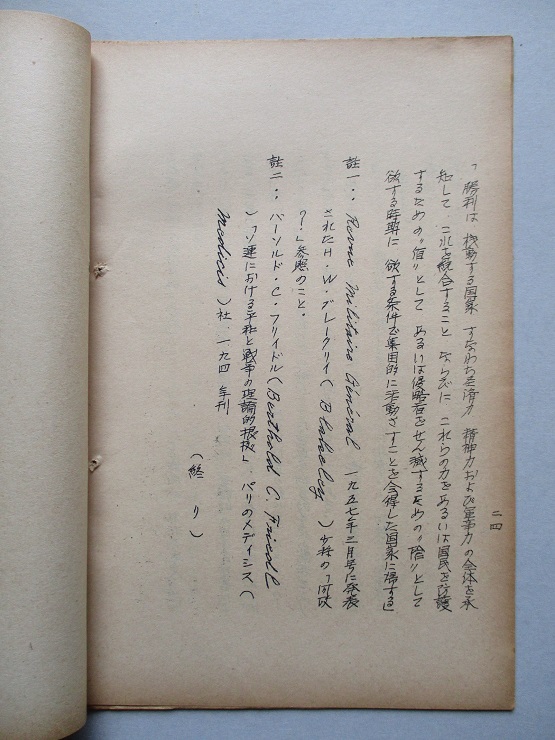 二四
「勝利は 機動する国家 すなわち経済力 精神力および軍事力の全体を承
知して これを統合すること ならびに これらの力をあるいは国民を防護
するための"盾"として あるいは侵略者をせん滅するための"鎗"として
欲する時期に 欲する条件で集団的に活動さすことを会得した国家に帰する」
註一.. Revue Militaire Général 一九五七年三月号に発表
されたH・W・ブレークリイ( Blakeley )少将の「何故
?」参照のこと。
註二.. バーソルド・C・フリイドル(Berthold C. Friedl
)「ソ連における平和と戦争の理論的根拠」 パリのメディシス(
Medicis )社 一九四 年刊
(終 り)